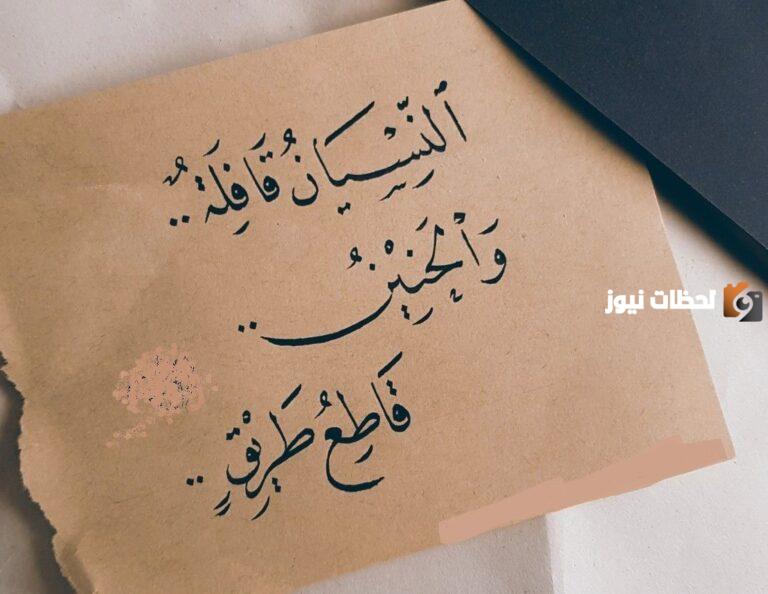 ٱلنِّسْيَانُ قَافِلَةٌ ..
وَٱلْحَنِيْنُ ..
قَاطِعُ طَرِيْقٍ ..
لحظات نيوز